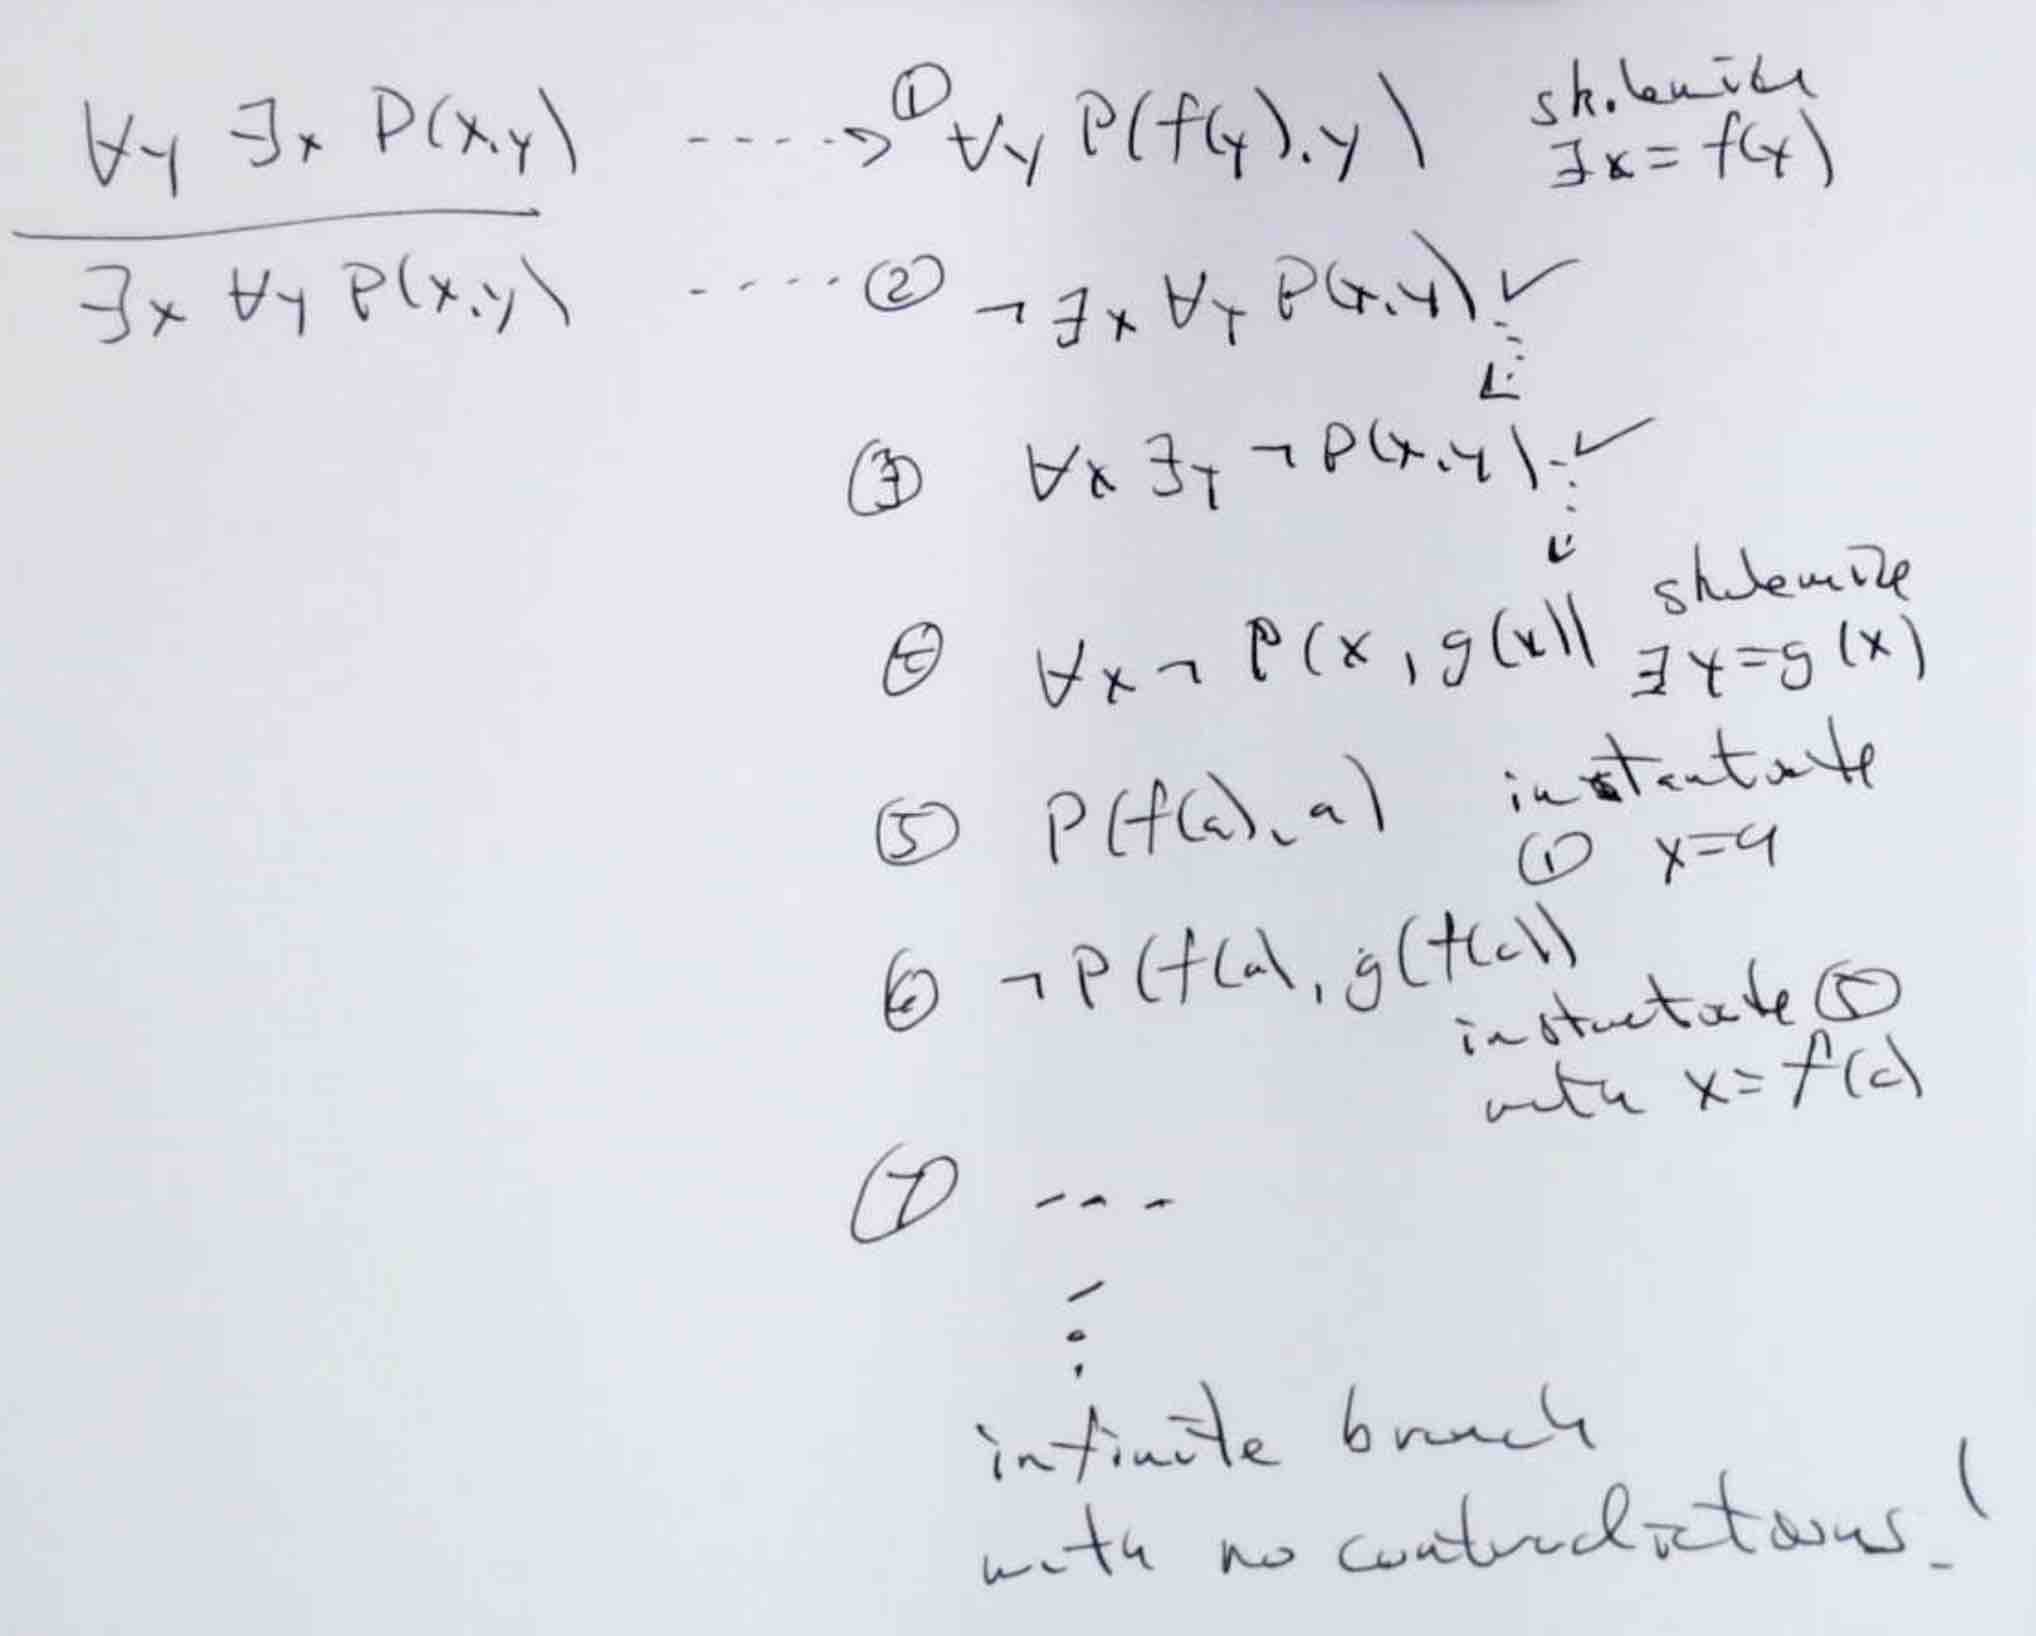 ∀y ∃x P(x,y) ----> ① ∀y P(f(y),y) skolemize
∃x = f(y)
∃x ∀y P(x,y) ---- ② ¬∃x ∀y P(x,y) ✓
③ ∀x ∃y ¬P(x,y) ✓
④ ∀x ¬P(x, g(x)) skolemize
∃y = g(x)
⑤ P(f(a), a) instantiate
① x=a
⑥ ¬P(f(a), g(f(a))
instantiate
with x = f(a)
⑦ ---
infinite branch
with no contradictions!